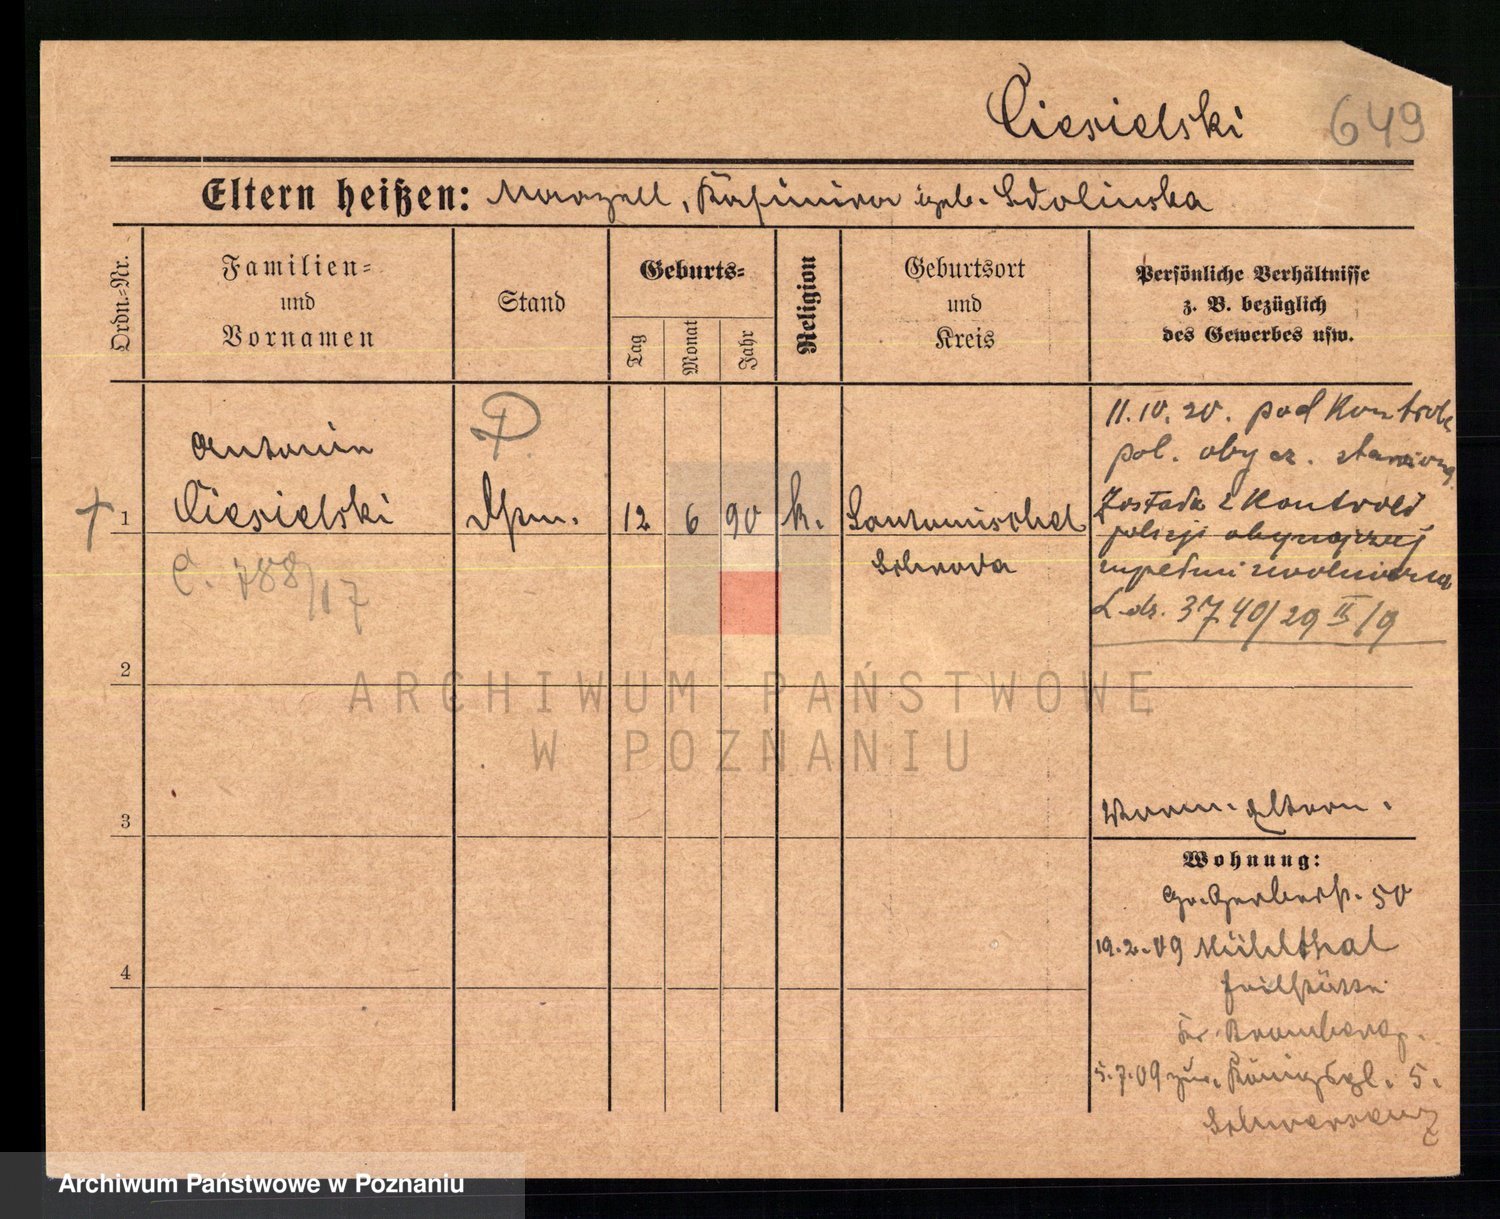 Ciesielski 649
Eltern heißen: Marzell, Kasimira geb. Sdolinska
Ordn.-Nr.
Familien-
und
Vornamen
Stand
Geburts-
Tag
Monat
Jahr
Religion
Geburtsort
und
Kreis
Persönliche Verhältnisse
z. B. bezüglich
des Gewerbes usw.
11.10.20. pod Kontrolę
pol. obycz.
Antonie
Ciesielski
1
12 6 90 k. Santomischel
Schroda
Została z Kontroli
policji obyczajowej
zupełnie zwolniona
L. dz. 3740/29 II/9
C. 788/17
2
3
4
Eltern.
Wohnung:
Gr. Gerberstr. 50
19.2.09 Mühlthal
Heilstätte
Kr. Bromberg.
5.7.09 zur. Königspl. 5.
Schwersenz
ARCHIWUM PAŃSTWOWE
W POZNANIU
Archiwum Państwowe w Poznaniu